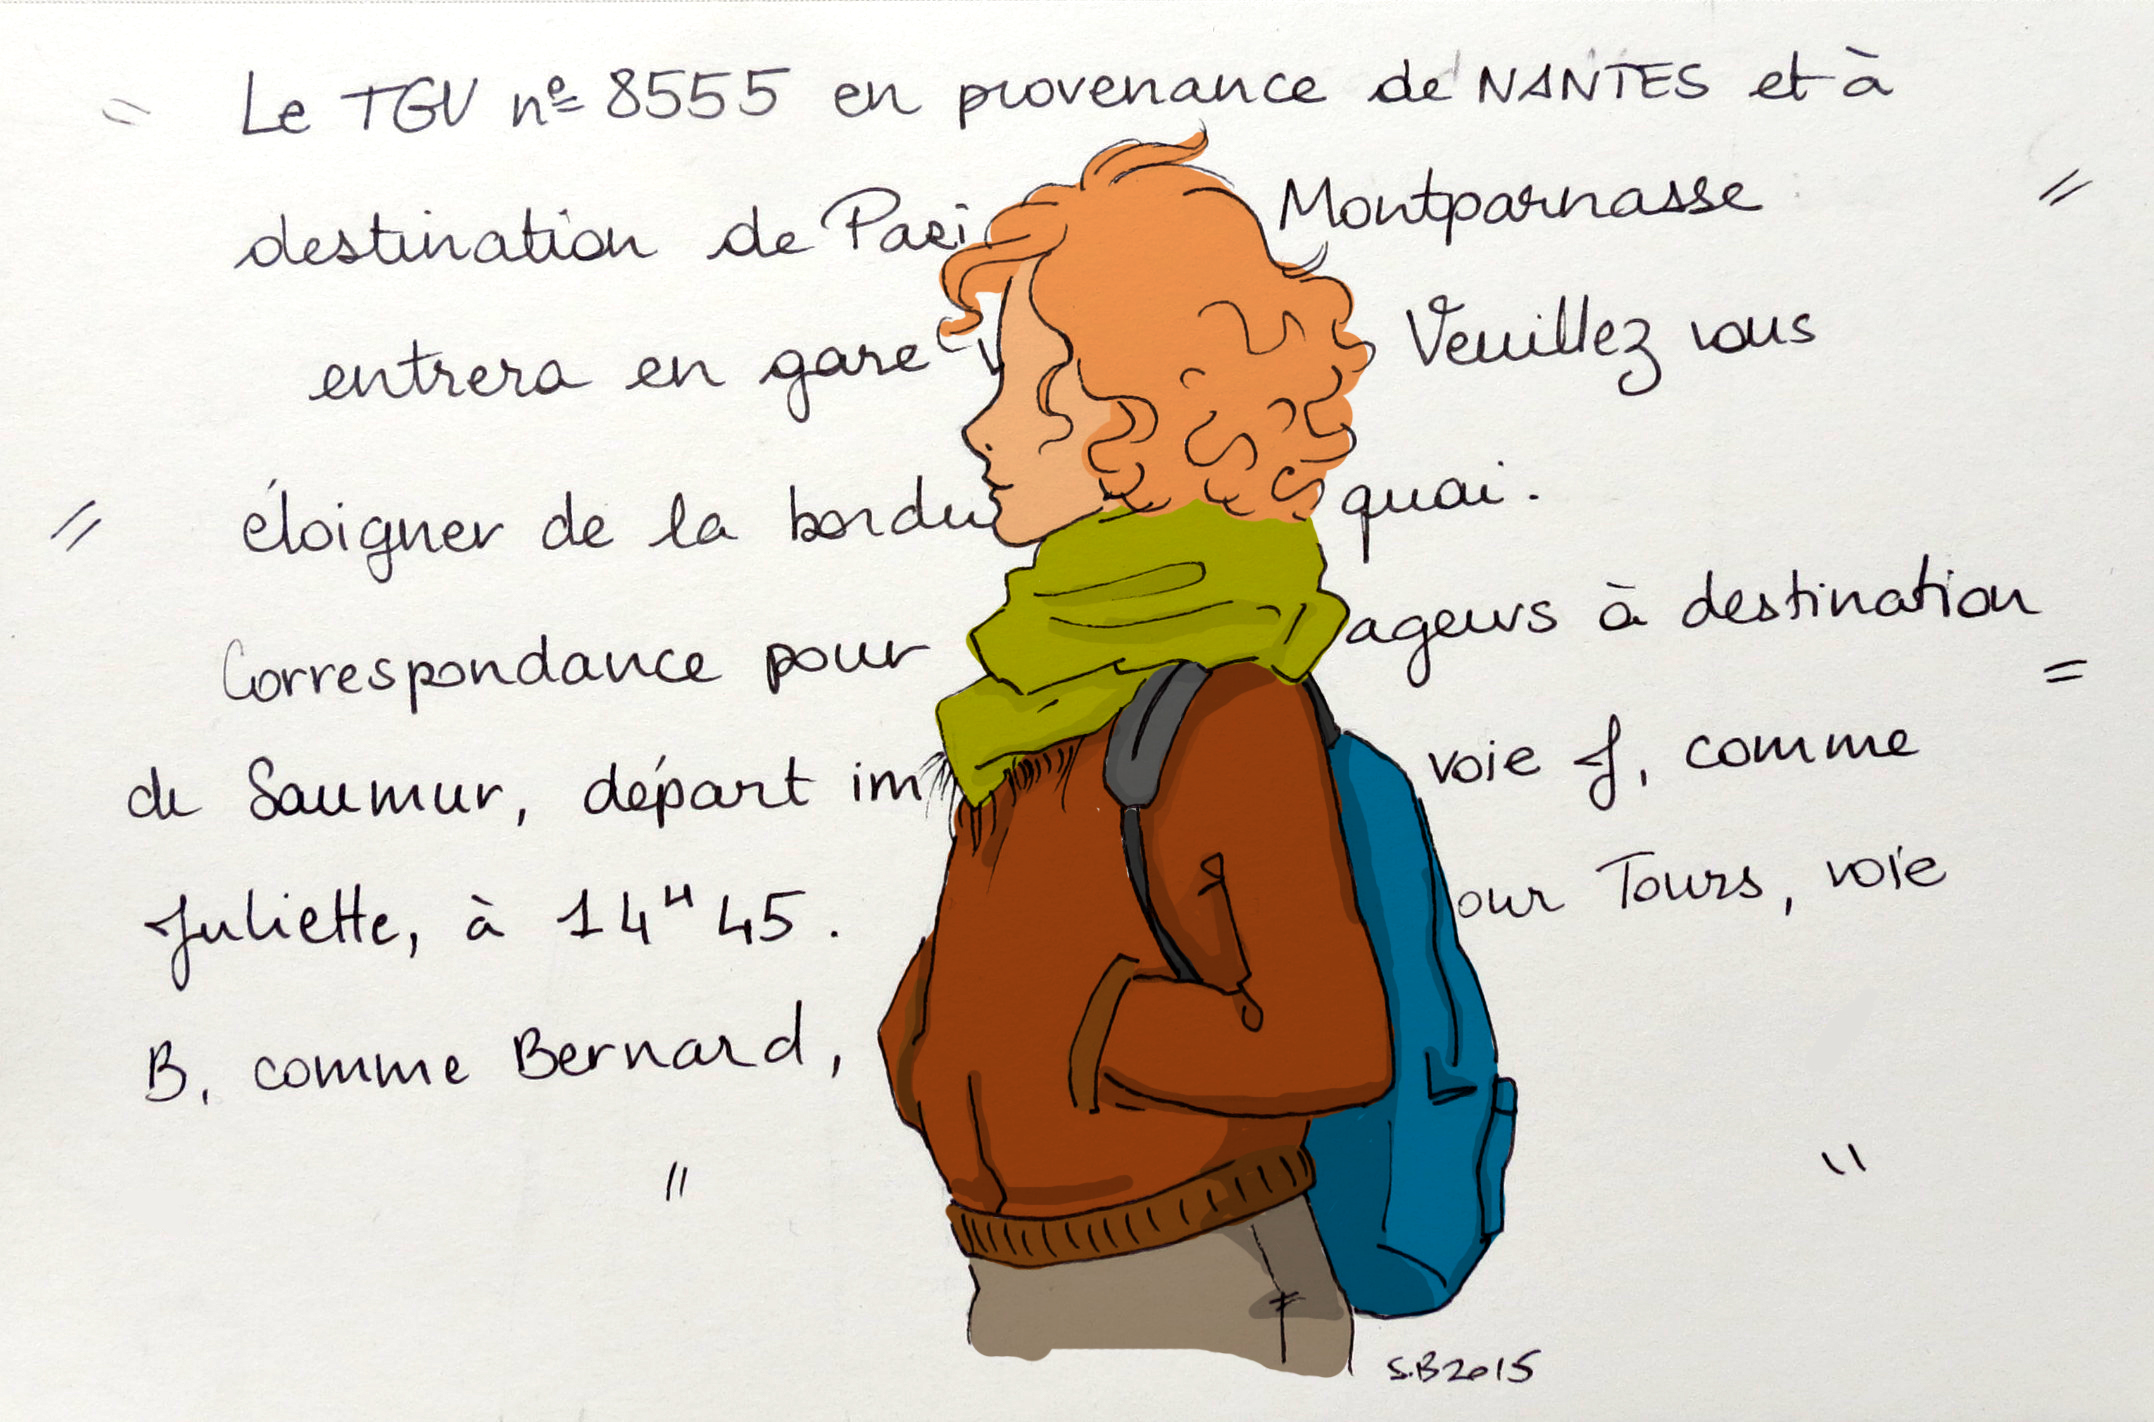 Le TGV nº 8555 en provenance de NANTES et à
destination de Pari Montparnasse
entrera en gare Veuillez vous
éloigner de la bordu quai.
Correspondance pour ageurs à destination
de Saumur, départ im voie J, comme
Juliette, à 14H45. our Tours, voie
B, comme Bernard,
S.B 2015